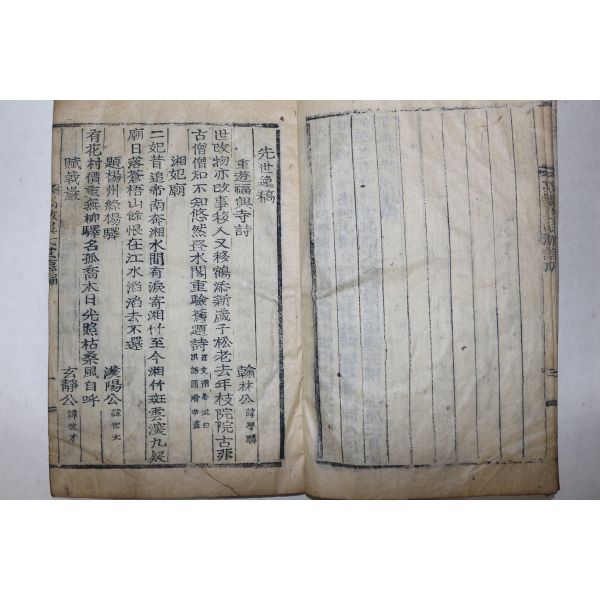 先世逸稿
重遊福興寺詩 翰林公 諱學鱗
世改物亦改事移人又移鶴添新歲子松老去年枝院院古非
古僧僧知不知悠然登水閣重驗舊題詩
湘妃廟
二妃昔追帝南奔湘水間有淚寄湘竹至今湘竹斑雲深九疑
廟日落蒼梧山餘恨在江水滔滔去不還
題楊州綠楊驛 漢陽公 諱世文
有花村價重無柳驛名孤喬木日先照枯桑風自呼
賦戟巖 玄靜公 諱世才